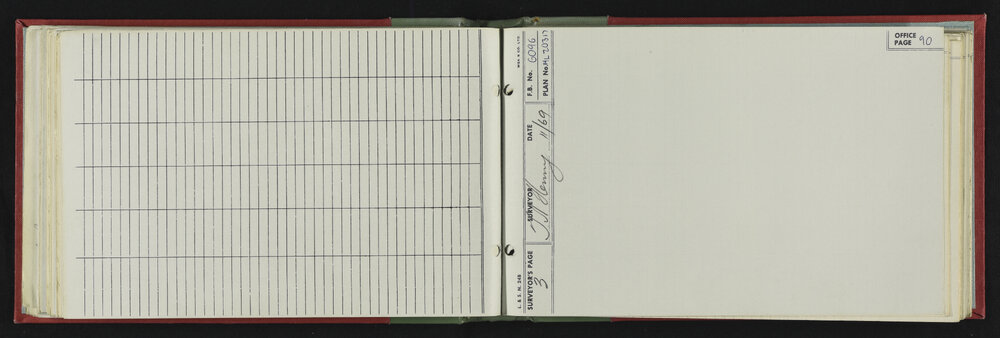 OFFICE
PAGE 90
F.B. No. 6096
PLAN No. ML 20317
DATE 11/69
SURVEYOR
SURVEYOR'S PAGE 3
L. & S. N. 54B